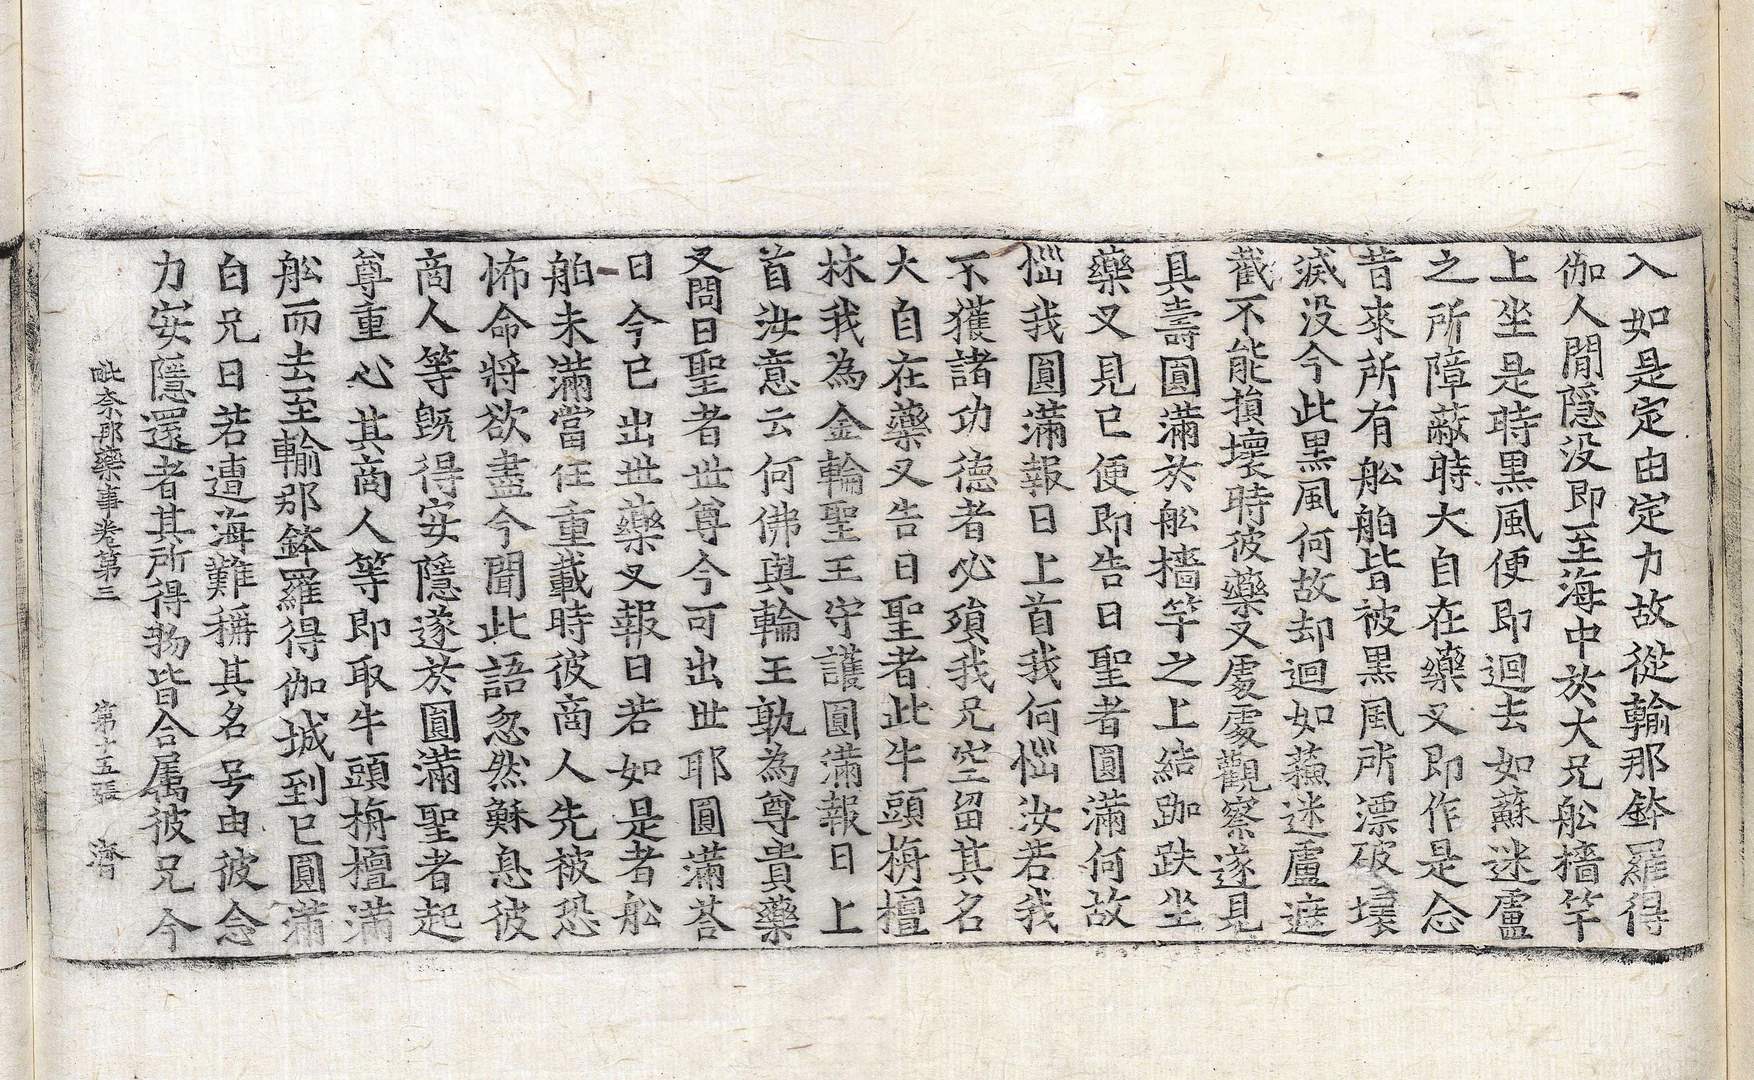 入如是定由定力故從輸那鉢羅得
伽人間隱没即至海中於大兄舩檣竿
上坐是時黒風便即迴去如蘇迷盧
之所障蔽時大自在藥叉即作是念
昔來所有舩舶皆被黒風所漂破壞
滅没今此黒風何故却迴如蘓迷盧遮
截不能損壞時彼藥叉處處觀察遂見
具壽圓滿於舩檣竿之上結跏趺坐
藥叉見已便即告曰聖者圓滿何故
惱我圓滿報曰上首我何惱汝若我
不獲諸功德者必殞我兄空留其名
大自在藥叉告曰聖者此牛頭栴檀
林我為金輪聖王守護圓滿報曰上
首汝意云何佛與輪王孰為尊貴藥
叉問曰聖者世尊今可出世耶圓滿荅
曰今已出世藥叉報曰若如是者舩
舶未滿當任重載時彼商人先被恐
怖命將欲盡今聞此語忽然蘇息彼
商人等旣得安隱遂於圓滿聖者起
尊重心其商人等即取牛頭栴檀滿
舩而去至輸那鉢羅得伽城到已圓滿
白兄曰若遭海難稱其名号由彼念
力安隱還者其所得物皆合属彼兄今
毗奈耶藥事卷第三　第十五張　濟